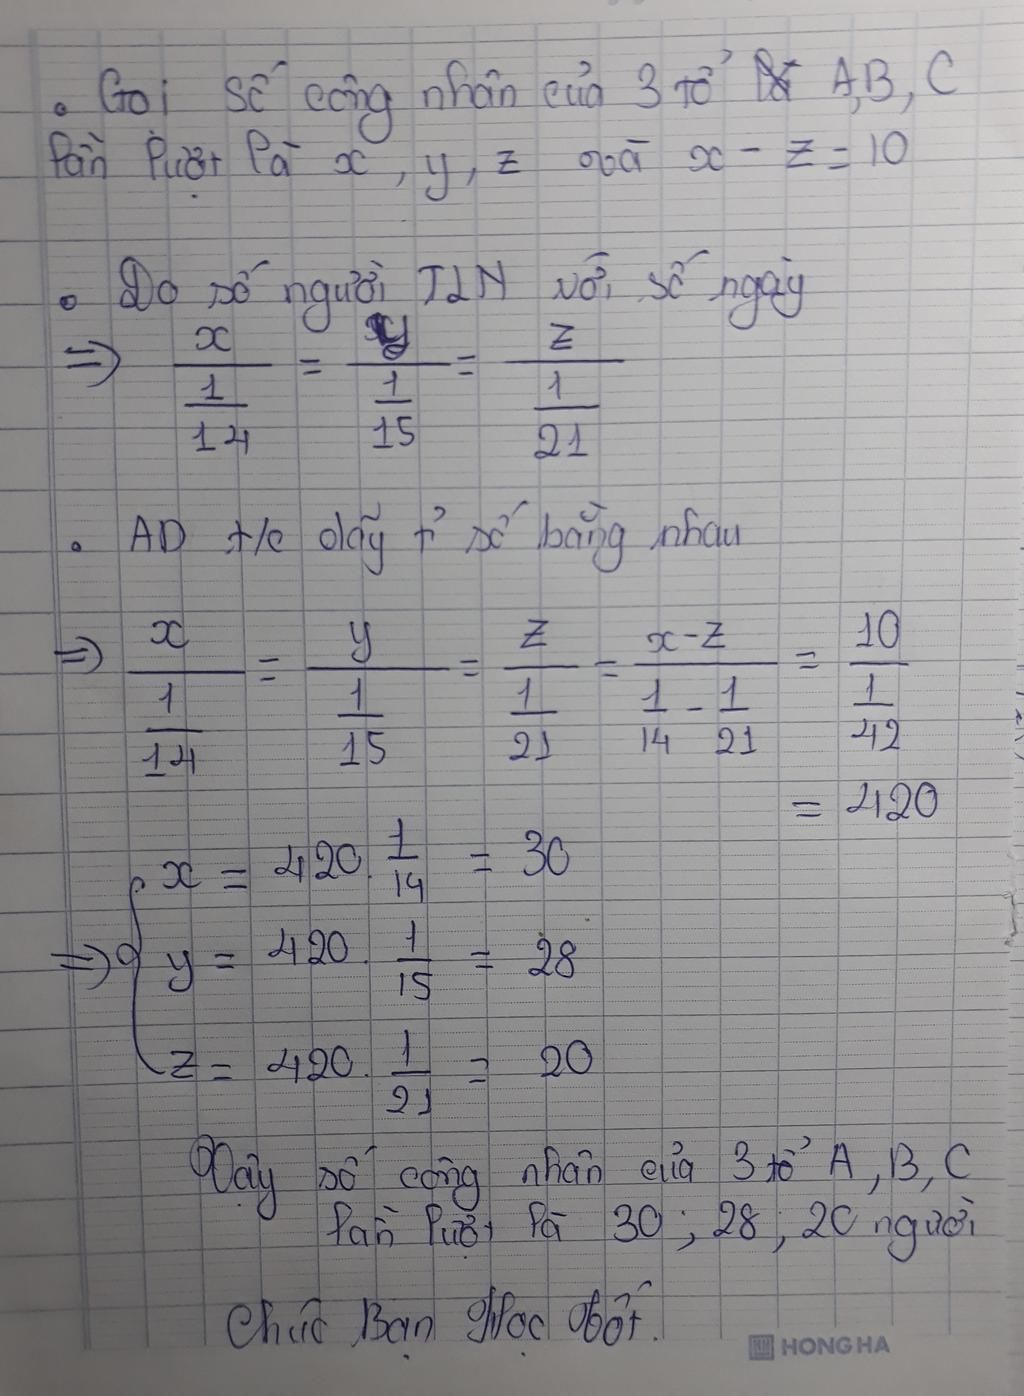 • Gọi số công nhân của 3 tổ A,B,C
lần lượt là x, y, z và x - z = 10
• Do số người TLN với số ngày
=> x/(1/14) = y/(1/15) = z/(1/21)
• AD t/c dãy tỉ số bằng nhau
=> x/(1/14) = y/(1/15) = z/(1/21) = (x-z)/(1/14 - 1/21) = 10/(1/42)
= 420
x = 420. 1/14 = 30
=> { y = 420. 1/15 = 28
z = 420. 1/21 = 20
Vậy số công nhân của 3 tổ A, B, C
lần lượt là 30; 28; 20 người
Chúc Bạn Học Tốt.
HONG HA